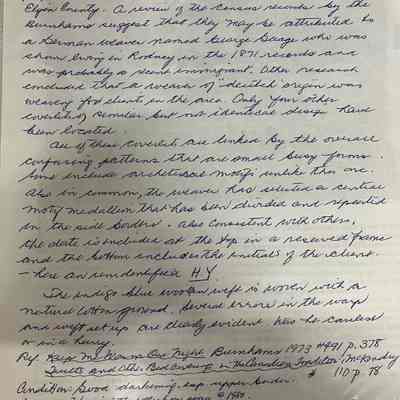 Elgin County. A review of the census records by the
Burnhams suggest that they may be attributed to
a German weaver named George Gage who was
shown living in Rodney, in the 1871 records and
was probably a recent immigrant. Other research
concluded that a weaver of "deutch" origin was
weaving for clients in the area. Only four other
coverlets of similar but not identical design have
been located.
All of these coverlets are linked by the overall
confusing patterns that are small busy forms.
Some include architectural motifs unlike this one.
Also in common, the weaver has selected a central
motif medallion that has been divided and repeated
in the side borders. Also consistent with others,
the date is included at the top in a reserved frame
and the bottom includes the initials of the client.
- here an unidentified H.Y.
The indigo blue woolen weft is woven with a
natural cotton ground. Several errors in the warp
and weft set up are clearly evident. Was he careless
or in a hurry.
Ref. Keep Me Warm One Night Burnhams 1973 #491 p. 378
Quilts and Other Bed Coverings in the Canadian Tradition, McKendry
# 110 p. 78
Condition: Good darkening top upper border.